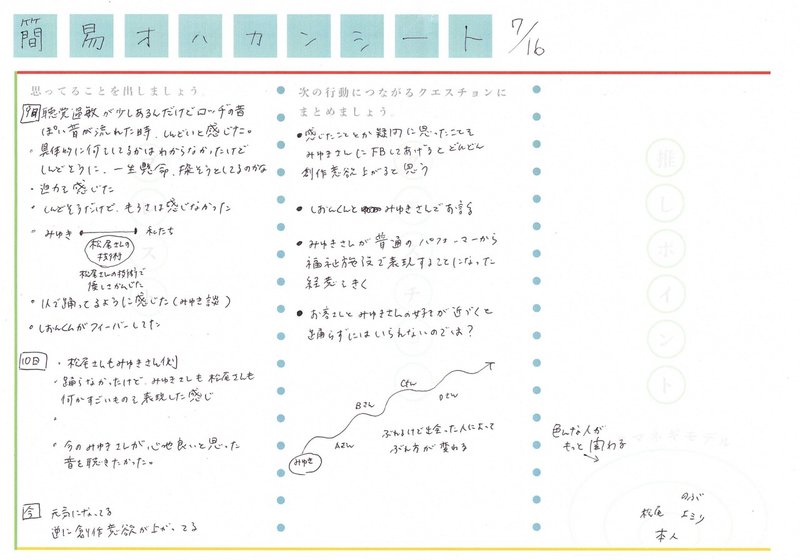 簡易オハカンシート 7/16
思ってることを出しましょう
9日 聴覚過敏が少しあるんだけどロッヂの音
ぽい音が流れた時、しんどいと感じた。
・具体的に何をしてるかはわからなかったけど
しんどそうに、一生懸命、探そうとしてるのかな
・迫力を感じた
・しんどそうだけど、もうさは感じなかった
・みゆき 私たち
松尾さんの
技術
松尾さんの技術で
優しさかんじた
・1人で踊ってるように感じた(みゆき談)
・しおんくんがフィーバーしてた
10日 ・松尾さんもみゆきさん側
・踊らなかったけど、みゆきさんも松尾さんも
何かすごいもので表現した感じ
・
・今のみゆきさんが心地良いと思った
音を聴きたかった。
今 元気になってる
逆に創作意欲が上がってる
次の行動につながるクエスチョンに
まとめましょう
●感じたことか疑問に思ったことを
みゆきさんにFBしてあげるとどんどん
創作意欲上がると思う
●しおんくんとみゆきさんでお話
●みゆきさんが普通のパフォーマーから
福祉施設で表現することになった
経売をきく
●お客さんとみゆきさんの好きが近づくと
踊らずにはいられないのでは?
みゆき
Aさん
Bさん
Cさん
Dさん
ぶれるけど出会った人によって
ぶれ方が変わる
推しポイント
色んな人が
もっと関わる
マネキモデル
のぶ
松尾 よミリ
本人